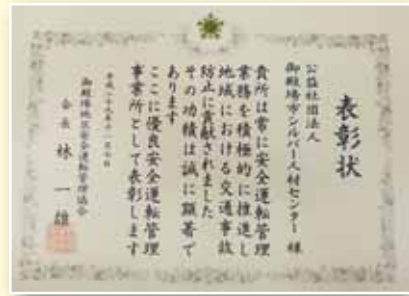 表彰状
公益社団法人
御殿場市シルバー人材センター 様
貴所は常に安全運転管理
業務を積極的に推進し
地域における交通事故
防止に貢献されました
その功績は誠に顕著で
あります
ここに優良安全運転管理
事業所として表彰します
御殿場地区安全運転管理協会
会長 林 一雄